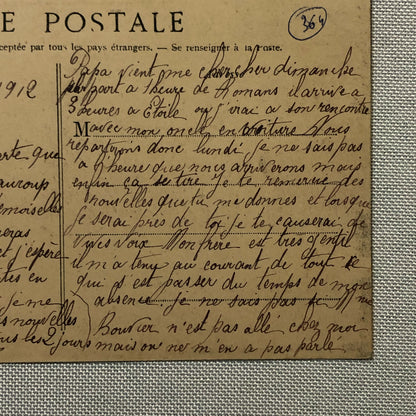 E POSTALE
364
ceptée par tous les pays étrangers. — Se renseigner à la Poste.
1912
Papa vient me chercher dimanche
part a heure de Romans il arrive a
3 heures a Etoile ou j'irai a son rencontre
M
avec mon oncle en voiture Nous
repartirons donc lundi je ne sais pas
a heure que nous arriverons mais
enfin ça se tire Je te remercie des
nouvelles que tu me donnes et lorsque
je serai près de toi je te causerai de
vive voix Mon frère est très gentil
il m'a tenu au courant de tout ce
qui s'est passer du temps de mon
absence Je ne sais pas si Mme
Bouvier n'est pas allé chez moi
mais on ne m'en a pas parlé
erte que
eaucoup
emoiselle
eras
et j'espère
tes en
je me
nouvelles
les 2 jours